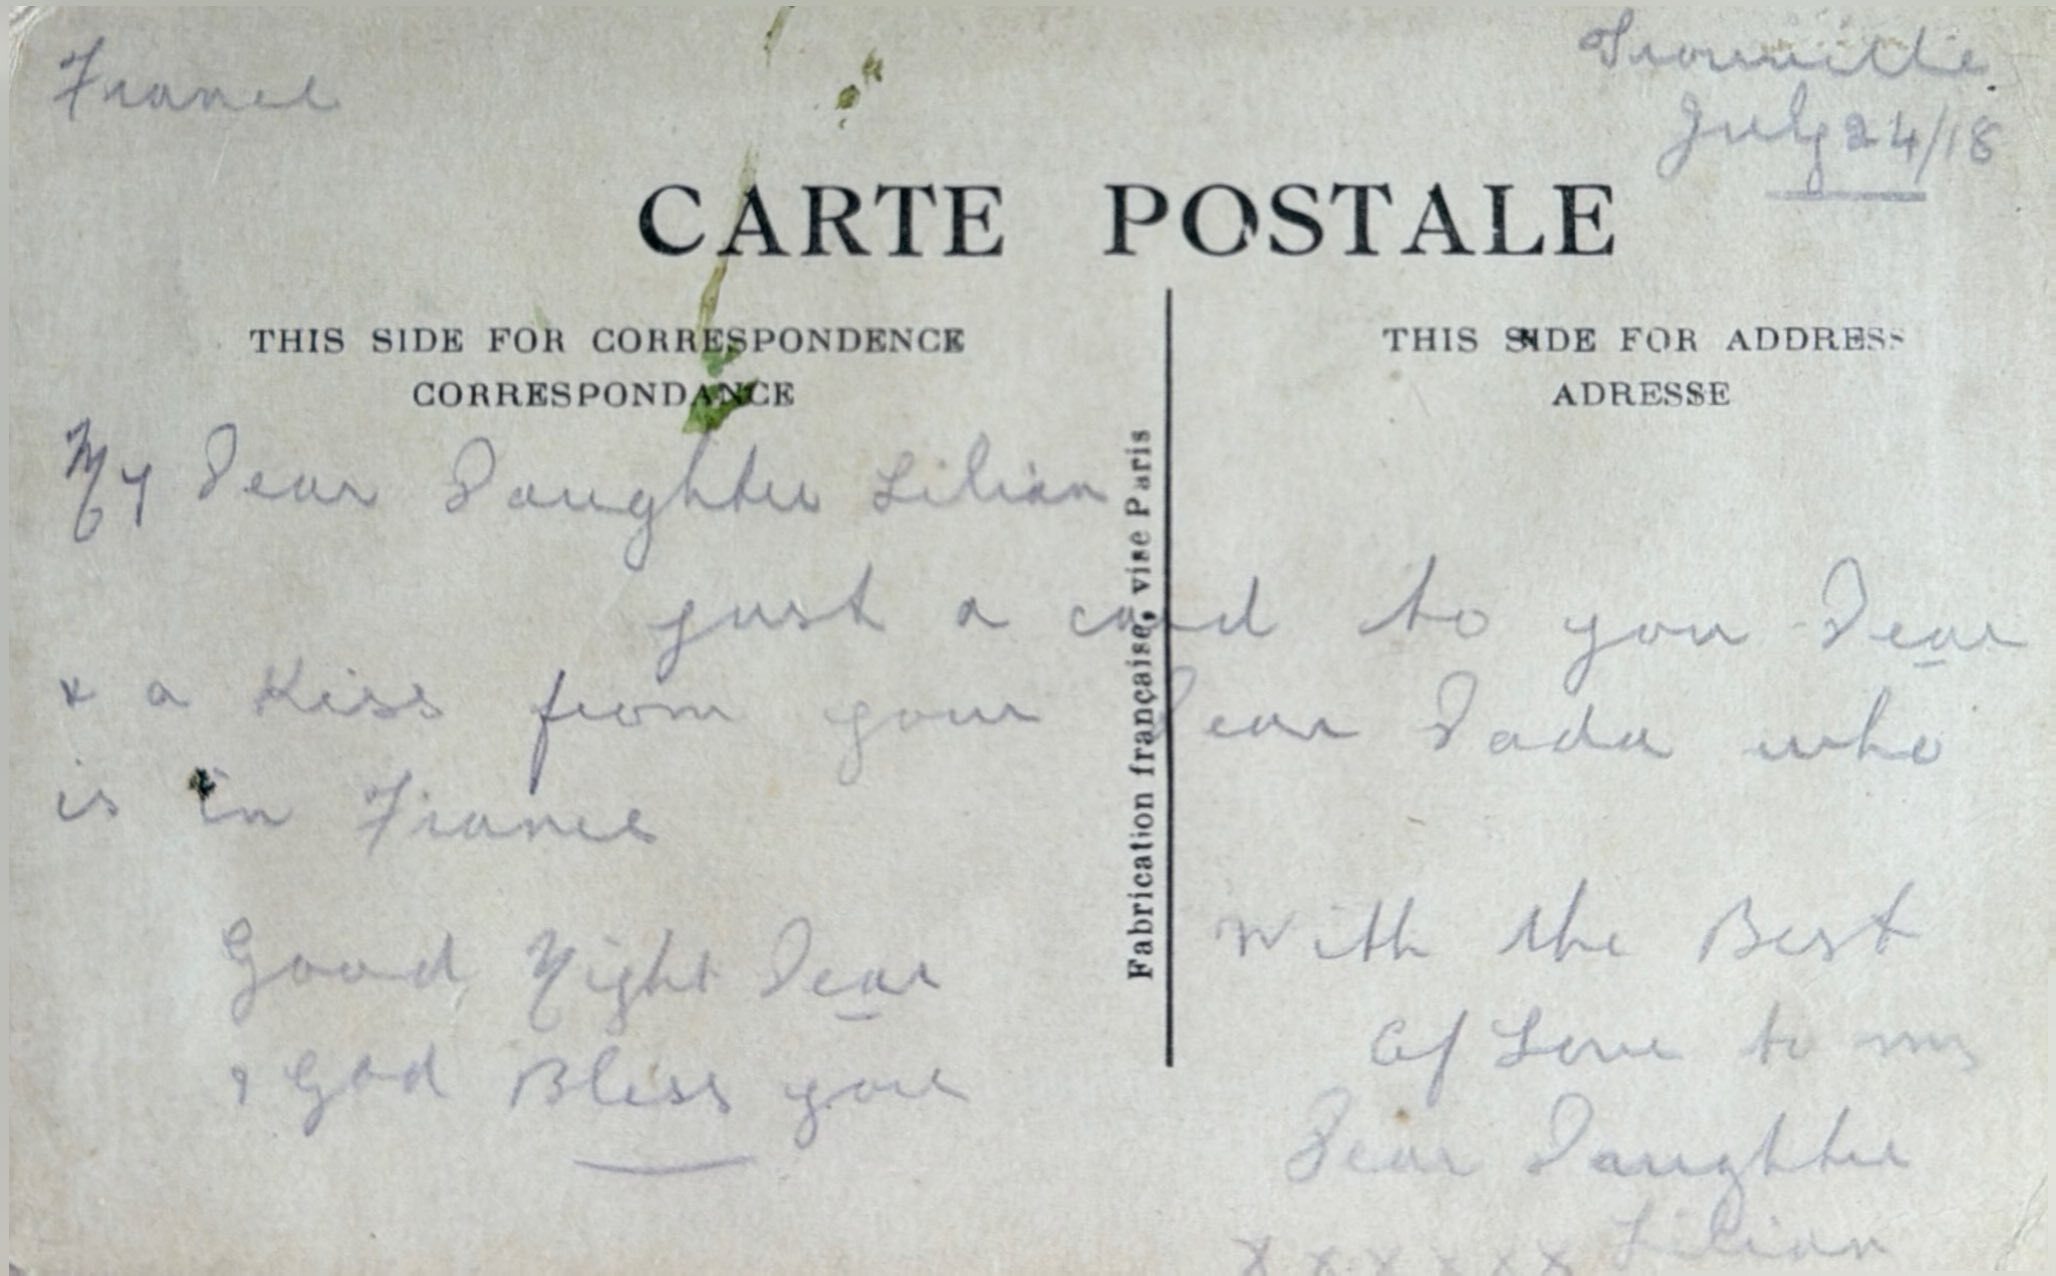 France
Trouville
July 24/18
CARTE POSTALE
THIS SIDE FOR CORRESPONDENCE
CORRESPONDANCE
THIS SIDE FOR ADDRESS
ADRESSE
Fabrication française, vise Paris
My Dear Daughter Lilian
just a card to you Dear
& a Kiss from your Dear Dada who
is in France
Good Night Dear
& God Bless you
With the Best
Of Love to my
Dear Daughter
x x x x x x Lilian